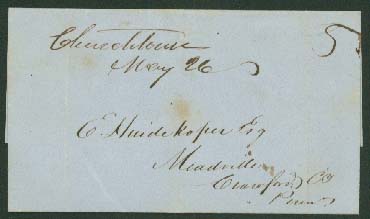 Churchtown 5
May 26
E. Huidekoper Esq
Meadville
Crawford Co
Penn